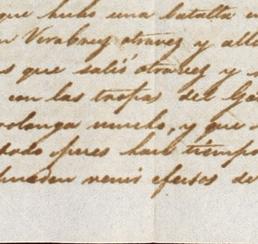 que hubo una batalla en
Verabrus otraves y alli
s que salió otraves y
con las tropas del Ge
olonga mucho, y que
todo pues hace tiempo
pueden venir efectos de